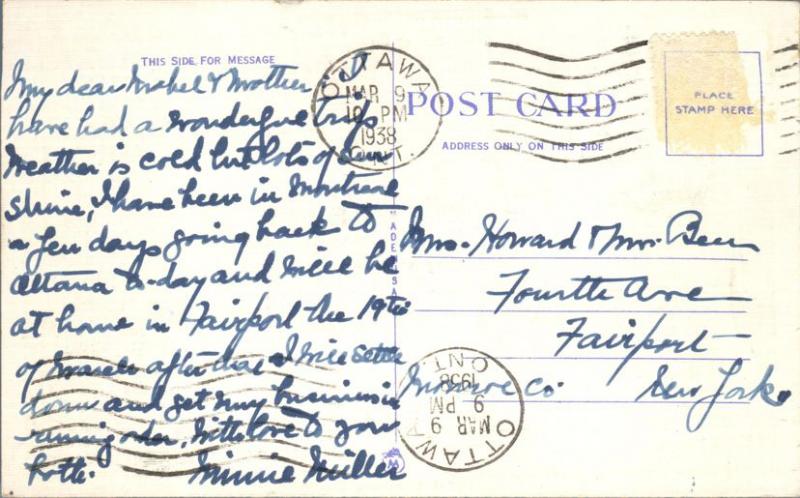 THIS SIDE FOR MESSAGE
My dear Mabel & Mother I
have had a wonderful trip
weather is cold but lots of sun
shine, I have been in Montreal
a few days going back to
Ottawa to-day and will be
at home in Fairport the 19th
of March after that I will settle
down and get my business in
running order. With love to you
both. Minnie Miller
OTTAWA
MAR 9
10 PM
1938
ONT.
POST CARD
ADDRESS ONLY ON THIS SIDE
PLACE
STAMP HERE
MADE USA
Mrs. Howard & Mrs.
Fourth Ave
Fairport
Monroe Co. New York
OTTAWA
MAR 9
9 PM
1938
ONT.